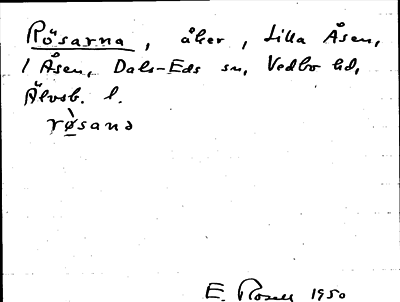 Rösarna, åker, Lilla Åsen,
1 Åsen, Dals-Eds sn, Vedbo hd,
Älvsb. l.
rø̀sanə
E. Rosell 1950